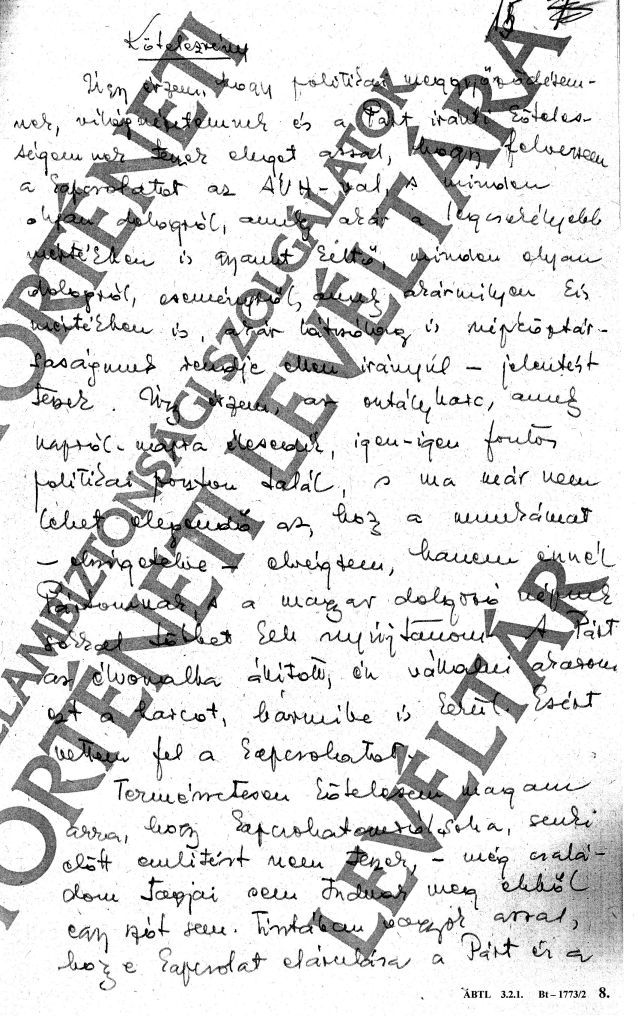 15
Kötelezvény
Úgy érzem, hogy politikai meggyőződésem-
nek, világnézetemnek és a Párt iránti köteles-
ségemnek teszek eleget azzal, hogy felveszem
a kapcsolatot az ÁVH-val, s minden
olyan dologról, amely akár a legcsekélyebb
mértékben is gyanút keltő, minden olyan
dologról, eseményről, amely akármilyen kis
mértékben is, akár látszólag is népköztár-
saságunk rendje ellen irányúl – jelentést
teszek. Úgy érzem, az osztályharc, amely
napról-napra élesedik, igen-igen fontos
politikai ponton talál, s ma már nem
lehet elegendő az, hogy a munkámat
– elszigetelve – elvégzem, hanem ennél
Pártomnak s a magyar dolgozó népnek
sokkal többet kell nyújtanom. A Párt
az élvonalba állított, én vállalni akarom
ezt a harcot, bármibe is kerül. Ezért
vettem fel a kapcsolatot.
Természetesen kötelezem magam
arra, hogy kapcsolatomról soha, senki
előtt említést nem teszek, – még csalá-
dom tagjai sem tudnak meg ebből
egy szót sem. Tisztában vagyok azzal,
hogy e kapcsolat elárulása a Párt és a
ÁBTL 3.2.1. Bt – 1773/2 8.
TÖRTÉNETI
ÁLLAMBIZTONSÁGI SZOLGÁLATOK
TÖRTÉNETI LEVÉLTÁRA
LEVÉLTÁR